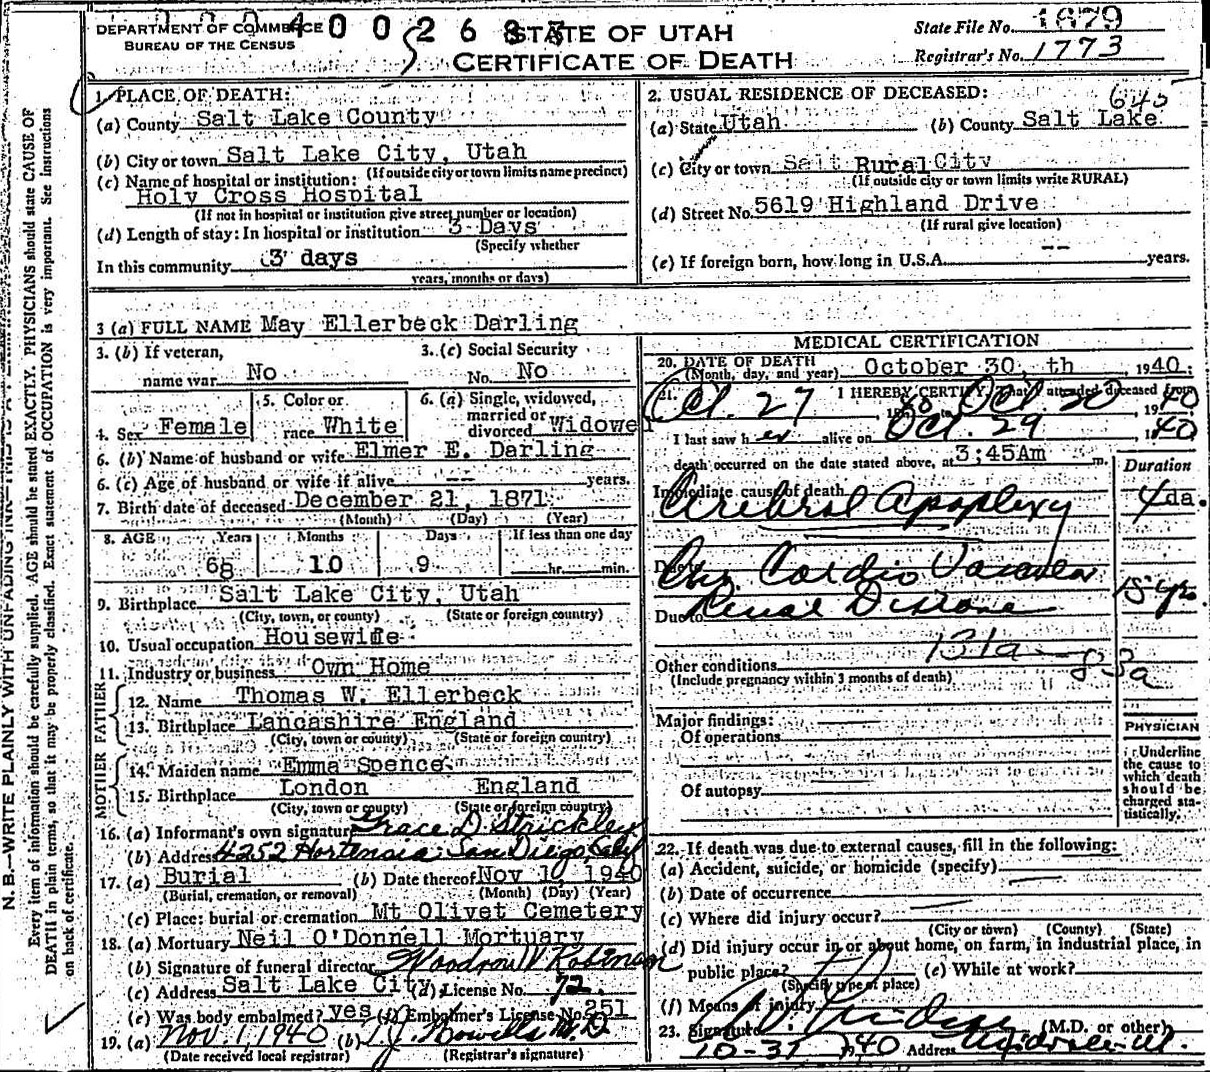 DEPARTMENT OF COMMERCE
BUREAU OF THE CENSUS
STATE OF UTAH
CERTIFICATE OF DEATH
State File No. 1879
Registrar's No. 1773
1. PLACE OF DEATH:
(a) County Salt Lake County
(b) City or town Salt Lake City, Utah
(If outside city or town limits name precinct)
(c) Name of hospital or institution:
Holy Cross Hospital
(If not in hospital or institution give street number or location)
(d) Length of stay: In hospital or institution 3 Days
(Specify whether
In this community 3 days
years, months or days)
2. USUAL RESIDENCE OF DECEASED:
645
(a) State Utah (b) County Salt Lake
(c) City or town Salt Rural City
(If outside city or town limits write RURAL)
(d) Street No. 5619 Highland Drive
(If rural give location)
(e) If foreign born, how long in U.S.A. -- years.
3 (a) FULL NAME May Ellerbeck Darling
3. (b) If veteran,
name war No
3. (c) Social Security
No. No
4. Sex Female
5. Color or
race White
6. (a) Single, widowed,
married or
divorced Widower
6. (b) Name of husband or wife Elmer E. Darling
6. (c) Age of husband or wife if alive -- years.
7. Birth date of deceased December 21, 1871
(Month) (Day) (Year)
8. AGE Years Months Days If less than one day
68 10 9 hr. min.
9. Birthplace Salt Lake City, Utah
(City, town, or county) (State or foreign country)
10. Usual occupation Housewife
11. Industry or business Own Home
FATHER
12. Name Thomas W. Ellerbeck
13. Birthplace Lancashire England
(City, town or county) (State or foreign country)
MOTHER
14. Maiden name Emma Spence
15. Birthplace London England
(City, town or county) (State or foreign country)
16. (a) Informant's own signature Grace D. Strickley
(b) Address 4252 Hortensia San Diego, Calif
17. (a) Burial (b) Date thereof Nov 1, 1940
(Burial, cremation, or removal) (Month) (Day) (Year)
(c) Place: burial or cremation Mt Olivet Cemetery
18. (a) Mortuary Neil O'Donnell Mortuary
(b) Signature of funeral director Woodrow V Robinson
(c) Address Salt Lake City (d) License No. 72
(e) Was body embalmed? yes (f) Embalmer's License No. 251
19. (a) Nov. 1, 1940 (b) M.D.
(Date received local registrar) (Registrar's signature)
MEDICAL CERTIFICATION
20. DATE OF DEATH
(Month, day, and year) October 30, th, 1940
21. I HEREBY CERTIFY, That I attended deceased from
Oct. 27, 1940 to Oct 30 1940
I last saw her alive on Oct. 29, 1940
death occurred on the date stated above, at 3:45Am m.
Duration
Immediate cause of death
Cerebral Apoplexy 4 da.
Due to Chr Cardio Vascular
Due to Renal Disease 15 yrs.
131a - 83a
Other conditions
(Include pregnancy within 3 months of death)
Major findings:
Of operations
Of autopsy
PHYSICIAN
Underline
the cause to
which death
should be
charged sta-
tistically.
22. If death was due to external causes, fill in the following:
(a) Accident, suicide, or homicide (specify)
(b) Date of occurrence
(c) Where did injury occur?
(City or town) (County) (State)
(d) Did injury occur in or about home, on farm, in industrial place, in
public place? (e) While at work?
(Specify type of place)
(f) Means of injury
23. Signature (M.D. or other)
10-31 1940 Address Midvale Ut.
N. B.—WRITE PLAINLY WITH UNFADING INK—THIS IS A PERMANENT
Every item of information should be carefully supplied. AGE should be stated EXACTLY. PHYSICIANS should state CAUSE OF
DEATH in plain terms, so that it may be properly classified. Exact statement of OCCUPATION is very important. See instructions
on back of certificate.